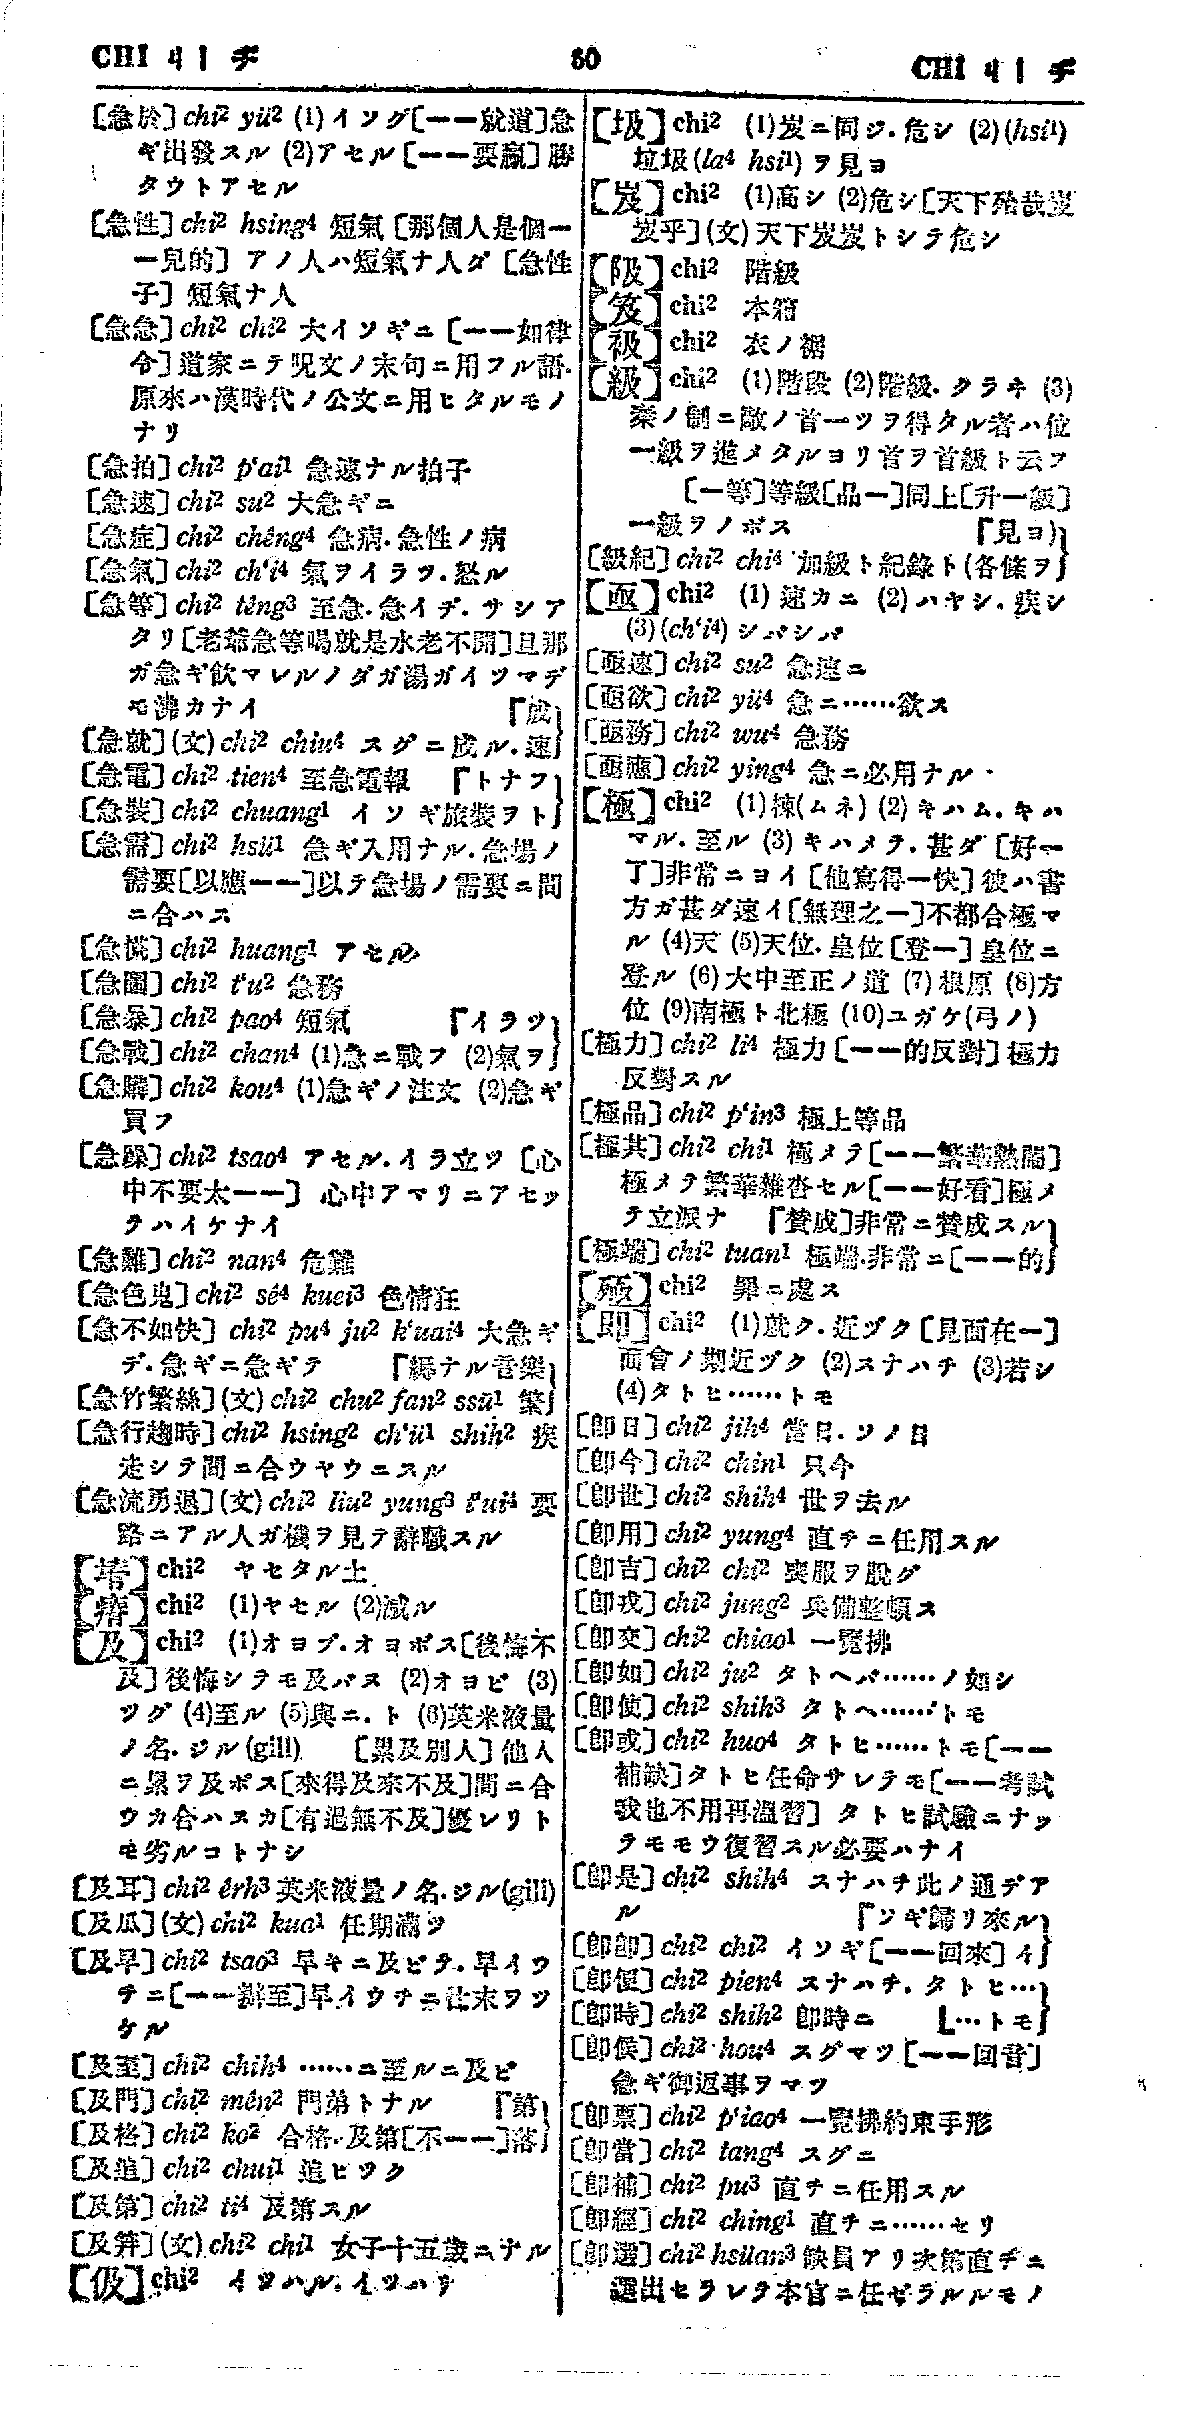 CHI ㄐㄧ チ 60 CHI ㄐㄧ チ
[急於] chi² yü² (1)イソグ[——就道]急
ギ出發スル (2)アセル[——要贏]勝
タウトアセル
[急性] chi² hsing⁴ 短氣[那個人是個一
一見的] アノ人ハ短氣ナ人ダ [急性
子] 短氣ナ人
[急急] chi² chi² 大イソギニ [——如律
令]道家ニテ呪文ノ末句ニ用フル語.
原來ハ漢時代ノ公文ニ用ヒタルモノ
ナリ
[急拍] chi² p'ai¹ 急速ナル拍子
[急速] chi² su² 大急ギニ
[急症] chi² chêng⁴ 急病.急性ノ病
[急氣] chi² ch'i⁴ 氣ヲイラツ.怒ル
[急等] chi² têng³ 至急.急イデ.サシア
タリ[老爺急等喝就是水老不開]旦那
ガ急ギ飲マレルノダガ湯ガイツマデ
モ沸カナイ 『成
[急就](文) chi² chiu⁴ スグニ成ル.速
[急電] chi² tien⁴ 至急電報 『トナフ
[急裝] chi² chuang¹ イソギ旅裝ヲト
[急需] chi² hsü¹ 急ギ入用ナル.急場ノ
需要[以應——]以テ急場ノ需要ニ間
ニ合ハス
[急慌] chi² huang¹ アセル
[急圖] chi² t'u² 急務
[急暴] chi² pao⁴ 短氣 『イラツ
[急戰] chi² chan⁴ (1)急ニ戰フ (2)氣ヲ
[急購] chi² kou⁴ (1)急ギノ注文 (2)急ギ
買フ
[急躁] chi² tsao⁴ アセル.イラ立ツ [心
中不要太——] 心中アマリニアセッ
テハイケナイ
[急難] chi² nan⁴ 危難
[急色鬼] chi² sê⁴ kuei³ 色情狂
[急不如快] chi² pu⁴ ju² k'uai⁴ 大急ギ
デ.急ギニ急ギテ 『縟ナル音樂
[急竹繁絲](文) chi² chu² fan² ssŭ¹ 繁
[急行趨時] chi² hsing² ch'ü¹ shih² 疾
走シテ間ニ合ウヤウニスル
[急流勇退](文) chi² liu² yung³ t'ui⁴ 要
路ニアル人ガ機ヲ見テ辭職スル
[塉] chi² ヤセタル土
[瘠] chi² (1)ヤセル (2)減ル
[及] chi² (1)オヨブ.オヨボス[後悔不
及]後悔シテモ及バヌ (2)オヨビ (3)
ツグ (4)至ル (5)與ニ.ト (6)英米液量
ノ名.ジル(gill) [累及別人]他人
ニ累ヲ及ボス[來得及來不及]間ニ合
ウカ合ハヌカ[有過無不及]優レリト
モ劣ルコトナシ
[及耳] chi² êrh³ 英米液量ノ名.ジル(gill)
[及瓜](文) chi² kua¹ 任期滿ツ
[及早] chi² tsao³ 早キニ及ビテ.早イウ
チニ[——辦至]早イウチニ仕末ヲツ
ケル
[及至] chi² chih⁴ ……ニ至ルニ及ビ
[及門] chi² mên² 門弟トナル 『第
[及格] chi² ko² 合格.及第[不——]落
[及追] chi² chui¹ 追ヒツク
[及第] chi² ti⁴ 及第スル
[及笄](文) chi² chi¹ 女子十五歲ニナル
[伋] chi² イツハル.イツハリ
[圾] chi² (1)岌ニ同ジ.危シ (2)(hsi¹)
垃圾(la⁴ hsi¹) ヲ見ヨ
[岌] chi² (1)高シ (2)危シ[天下殆哉岌
岌乎](文)天下岌岌トシテ危シ
[阪] chi² 階級
[笈] chi² 本箱
[衱] chi² 衣ノ裾
[級] chi² (1)階段 (2)階級.クラヰ (3)
秦ノ制ニ敵ノ首一ツヲ得タル者ハ位
一級ヲ進メタルヨリ首ヲ首級ト云フ
[一等]等級[品一]同上[升一級]
一級ヲノボス 『見ヨ)
[級紀] chi² chi⁴ 加級ト紀錄ト(各條ヲ
[亟] chi² (1)速カニ (2)ハヤシ.疾シ
(3)(ch'i⁴) シバシバ
[亟速] chi² su² 急速ニ
[亟欲] chi² yü⁴ 急ニ……欲ス
[亟務] chi² wu⁴ 急務
[亟應] chi² ying⁴ 急ニ必用ナル
[極] chi² (1)棟(ムネ) (2)キハム.キハ
マル.至ル (3)キハメテ.甚ダ[好一
了]非常ニヨイ[他寫得一快]彼ハ書
方ガ甚ダ速イ[無理之一]不都合極マ
ル (4)天 (5)天位.皇位[登一]皇位ニ
登ル (6)大中至正ノ道 (7)根原 (8)方
位 (9)南極ト北極 (10)ユガケ(弓ノ)
[極力] chi² li⁴ 極力[——的反對]極力
反對スル
[極品] chi² p'in³ 極上等品
[極其] chi² chi¹ 極メテ[——繁華熱鬧]
極メテ繁華雜沓セル[——好看]極メ
テ立派ナ 『贊成]非常ニ贊成スル
[極端] chi² tuan¹ 極端.非常ニ[——的
[殛] chi² 罪ニ處ス
[即] chi² (1)就ク.近ヅク[見面在一]
面會ノ期近ヅク (2)スナハチ (3)若シ
(4)タトヒ……トモ
[即日] chi² jih⁴ 當日.ソノ日
[即今] chi² chin¹ 只今
[即世] chi² shih⁴ 世ヲ去ル
[即用] chi² yung⁴ 直チニ任用スル
[即吉] chi² chi² 喪服ヲ脫グ
[即戎] chi² jung² 兵備整頓ス
[即交] chi² chiao¹ 一覽拂
[即如] chi² ju² タトヘバ……ノ如シ
[即使] chi² shih³ タトヘ……トモ
[即或] chi² huo⁴ タトヒ……トモ[——
補缺]タトヒ任命サレテモ[——考試
我也不用再溫習] タトヒ試驗ニナッ
テモモウ復習スル必要ハナイ
[即是] chi² shih⁴ スナハチ此ノ通デア
ル 『ソギ歸リ來ル
[即即] chi² chi² イソギ[——回來]イ
[即便] chi² pien⁴ スナハチ.タトヒ…
[即時] chi² shih² 即時ニ 〔…トモ
[即候] chi² hou⁴ スグマツ[——回音]
急ギ御返事ヲマツ
[即票] chi² p'iao⁴ 一覽拂約束手形
[即當] chi² tang⁴ スグニ
[即補] chi² pu³ 直チニ任用スル
[即經] chi² ching¹ 直チニ……セリ
[即選] chi² hsüan³ 缺員アリ次第直チニ
選出セラレテ本官ニ任ゼラルルモノ